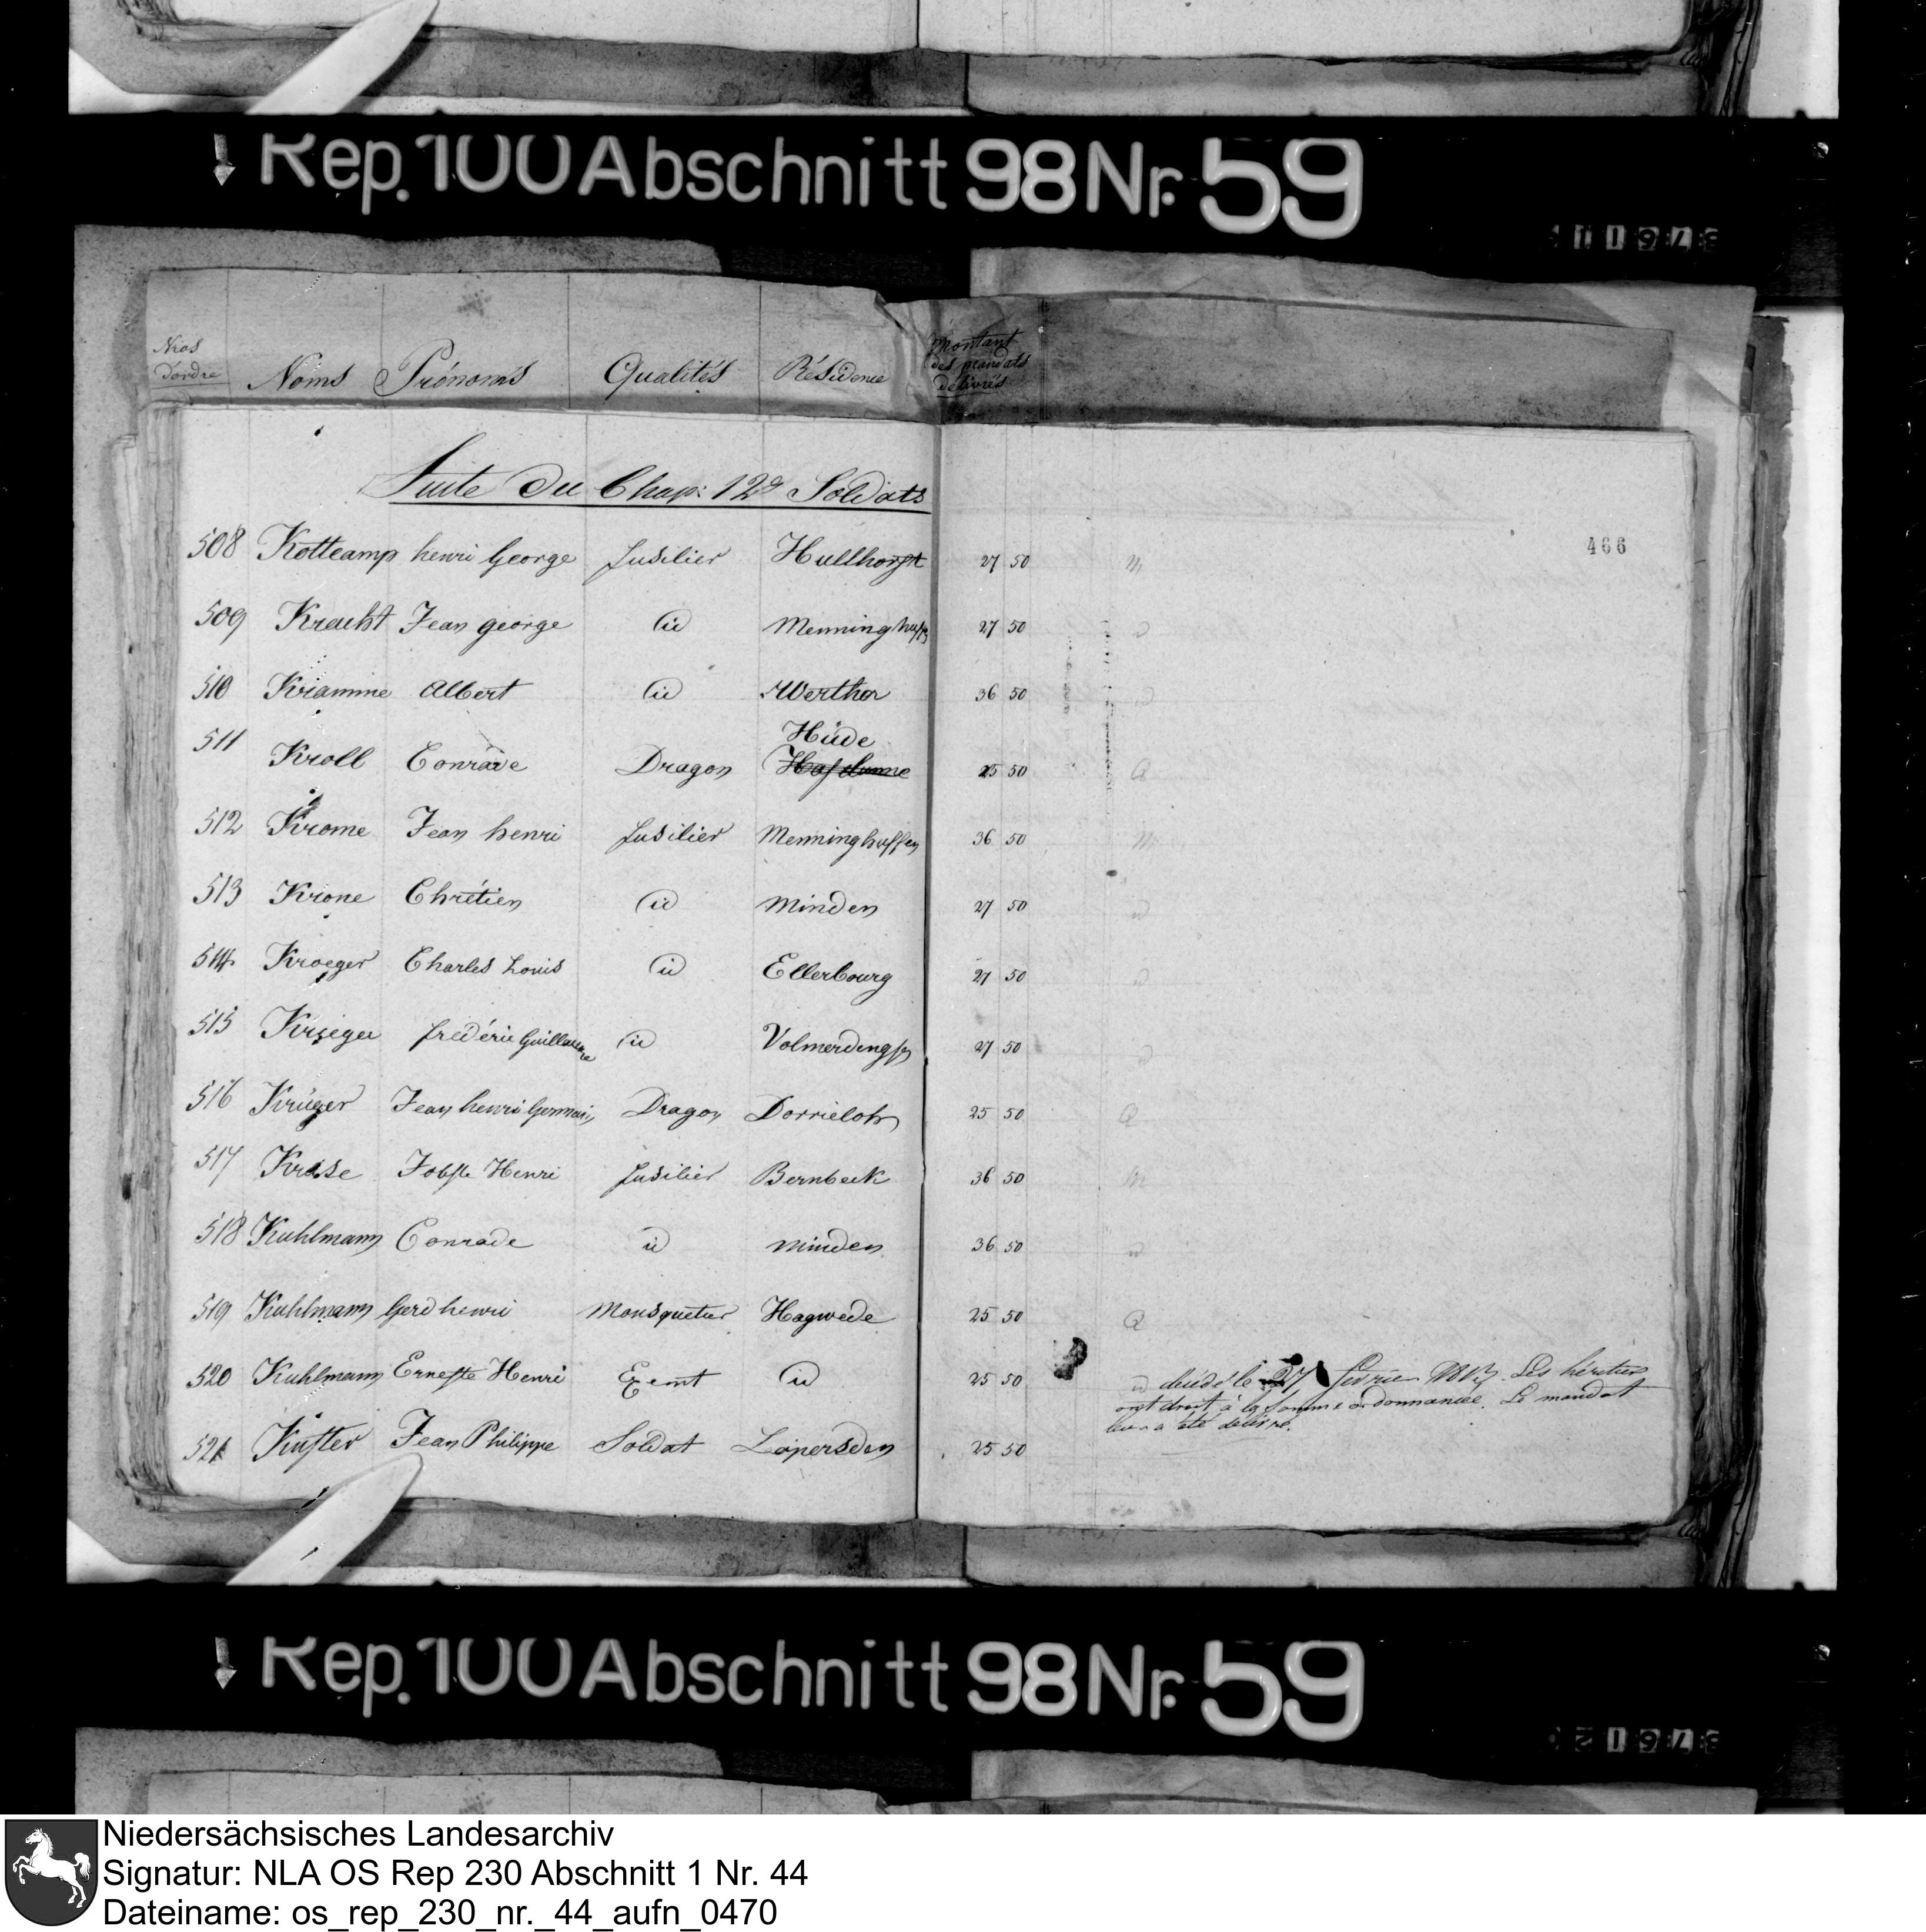 Rep. 100 Abschnitt 98 Nr. 59
Nros d'ordre Noms Prénoms Qualités Résidence Montant des mandats délivrés
Suite du Chap: 12d Soldats
466
508 Kottcamp henri George fusilier Hullhorst 27 50 m
509 Kracht Jean george id Menninghuffen 27 50 id
510 Kramme Albert id Werther 36 50 id
Hüde
511 Kroll Conrade Dragon 25 50 Q
512 Krome Jean henri fusilier Menninghuffen 36 50 m
513 Krone Chrétien id minden 27 50 id
514 Kroeger Charles Louis id Ellerbourg 27 50 id
515 Krieger frédéric Guillaume id Volmerdingsen 27 50 id
516 Krüger Jean henri Germain Dragon Dorrieloh 25 50 Q
517 Kruse Jobste Henri fusilier Bernbeck 36 50 m
518 Kuhlmann Conrade id minden 36 50 id
519 Kuhlmann Gerd henri Mousquetier Hagwede 25 50 Q
520 Kuhlmann Erneste Henri Exemt id 25 50 id décédé le 27 février Les héritiers
ont droit à la somme ordonnancée. Le mandat
leur a été délivré.
521 Kuster Jean Philippe Soldat Lapersden 25 50
Rep. 100 Abschnitt 98 Nr. 59
Niedersächsisches Landesarchiv
Signatur: NLA OS Rep 230 Abschnitt 1 Nr. 44
Dateiname: os_rep_230_nr._44_aufn_0470